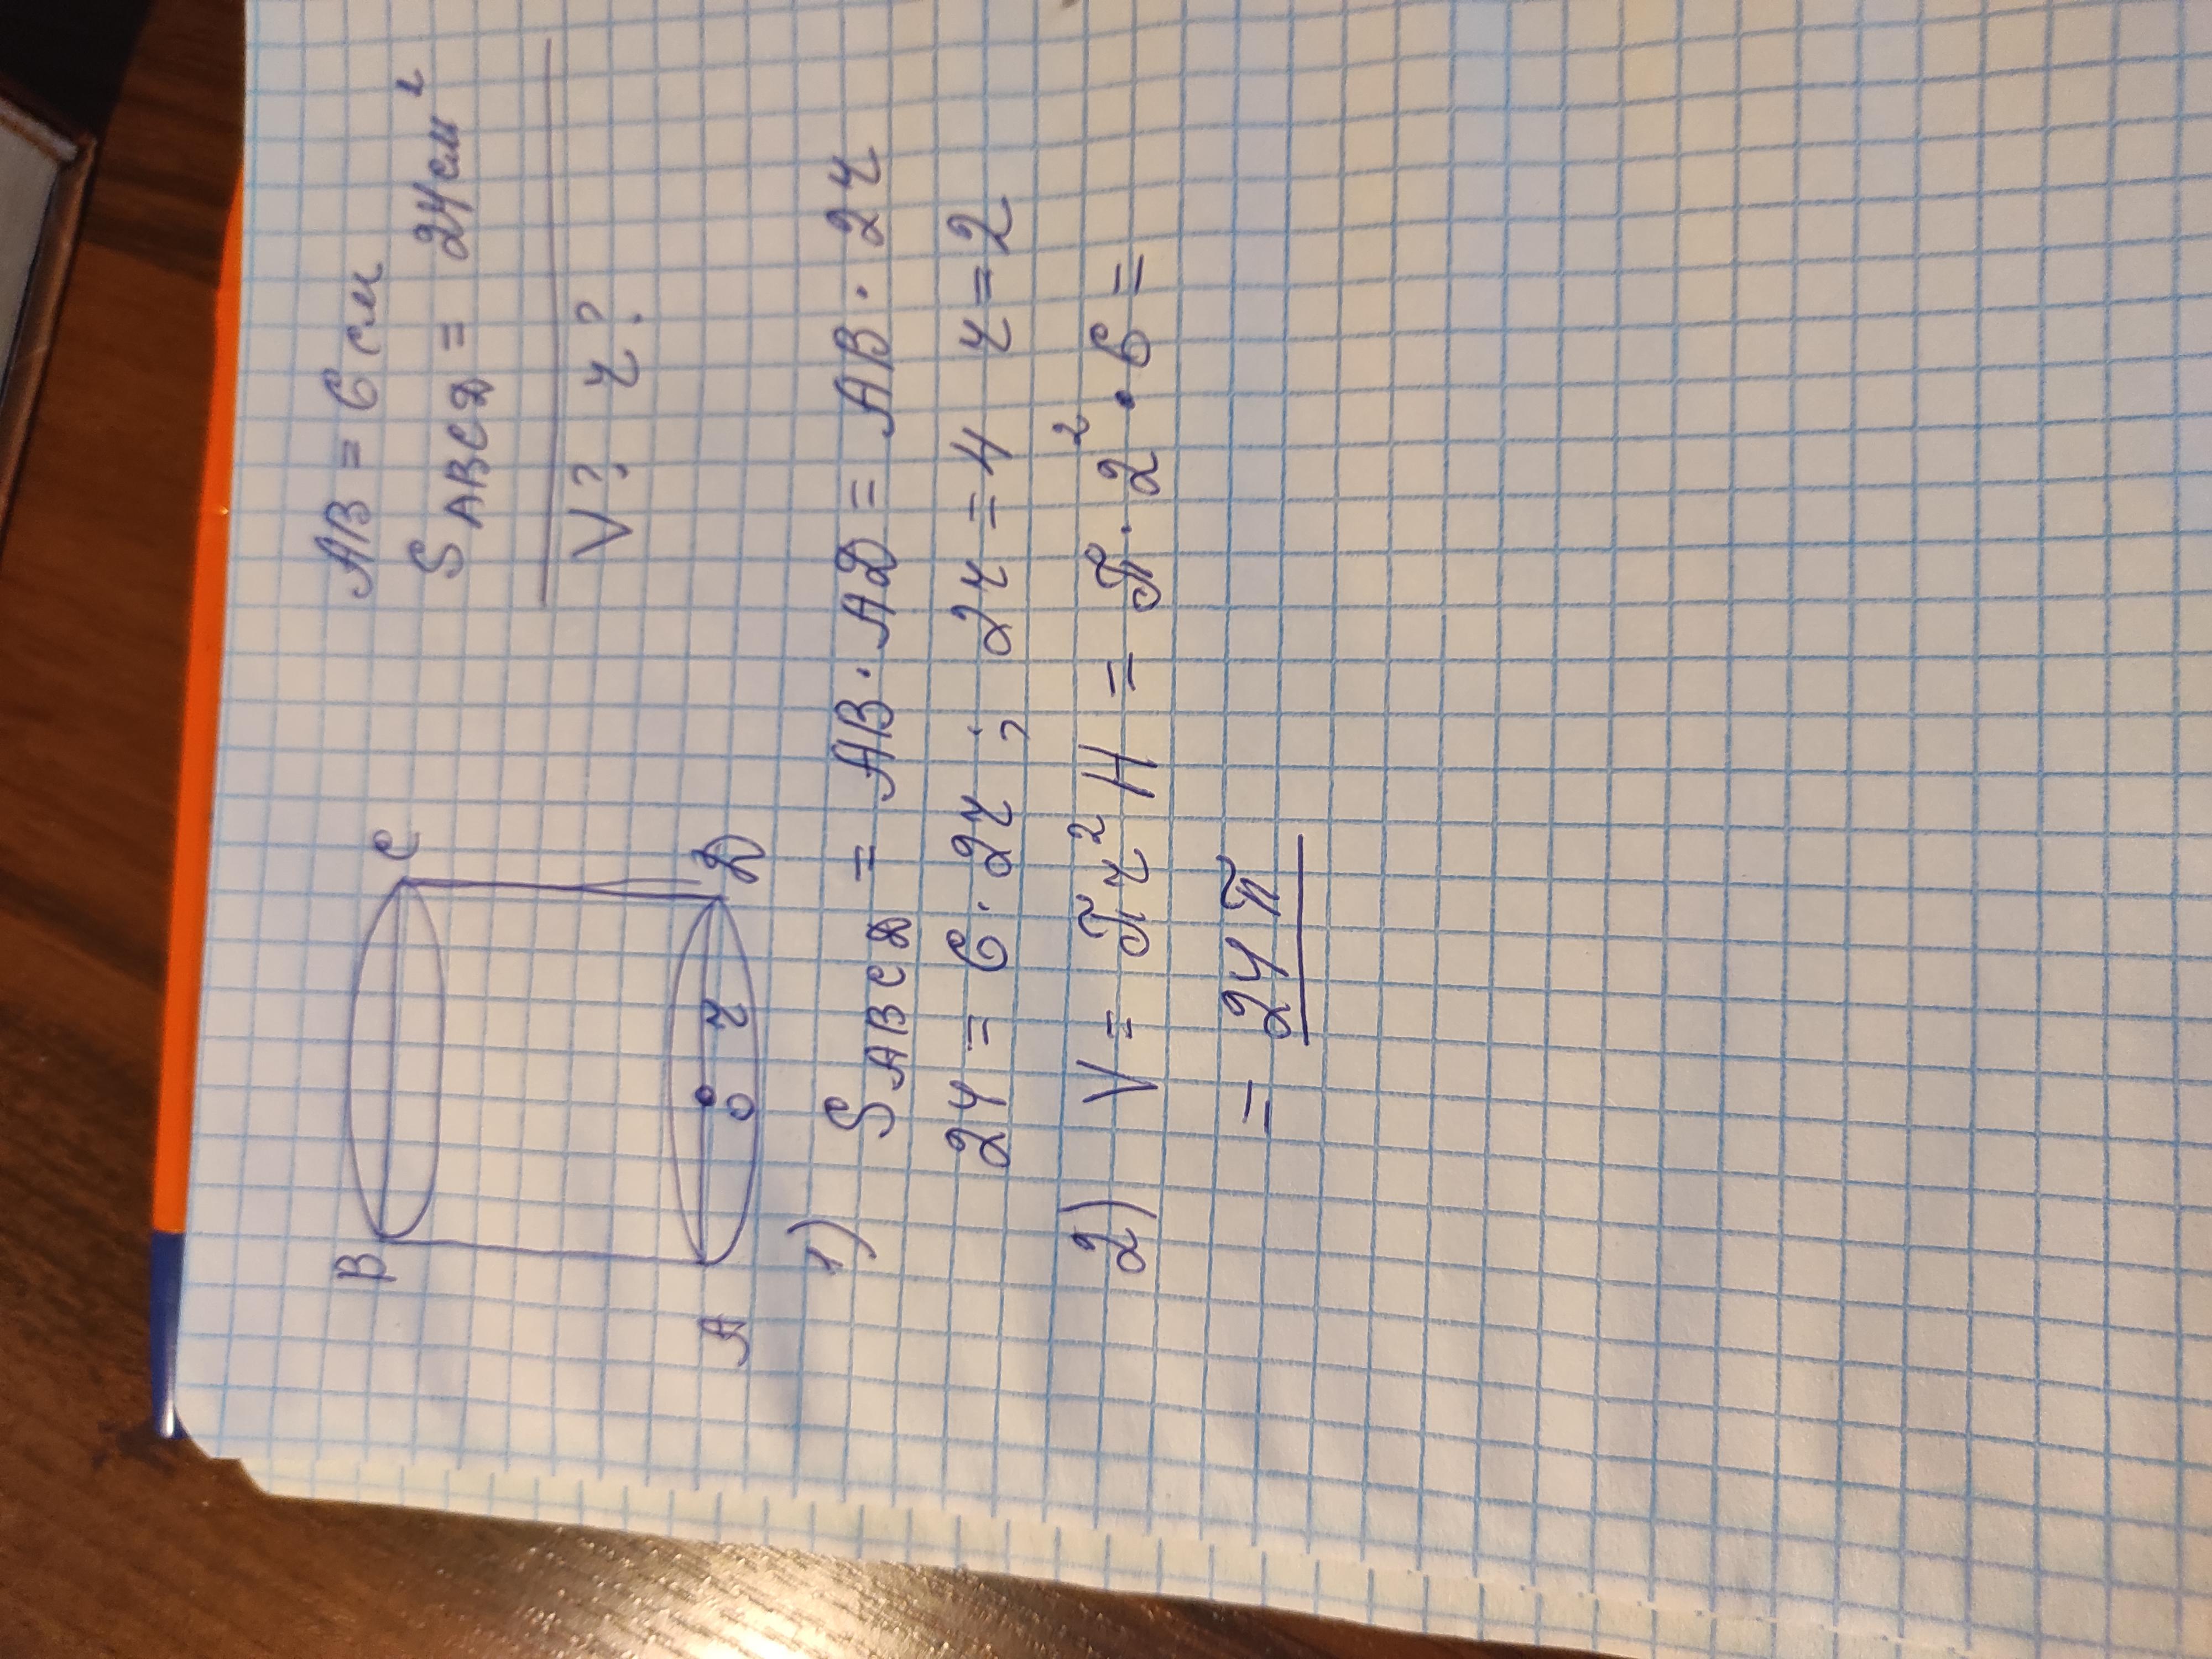 B C
A O r D
AB = 6 см
S ABCD = 24 см²
V? r?
1) S ABCD = AB · AD = AB · 2r
24 = 6 · 2r ; 2r = 4 r = 2
2) V = πr²H = π · 2² · 6 =
= 24π